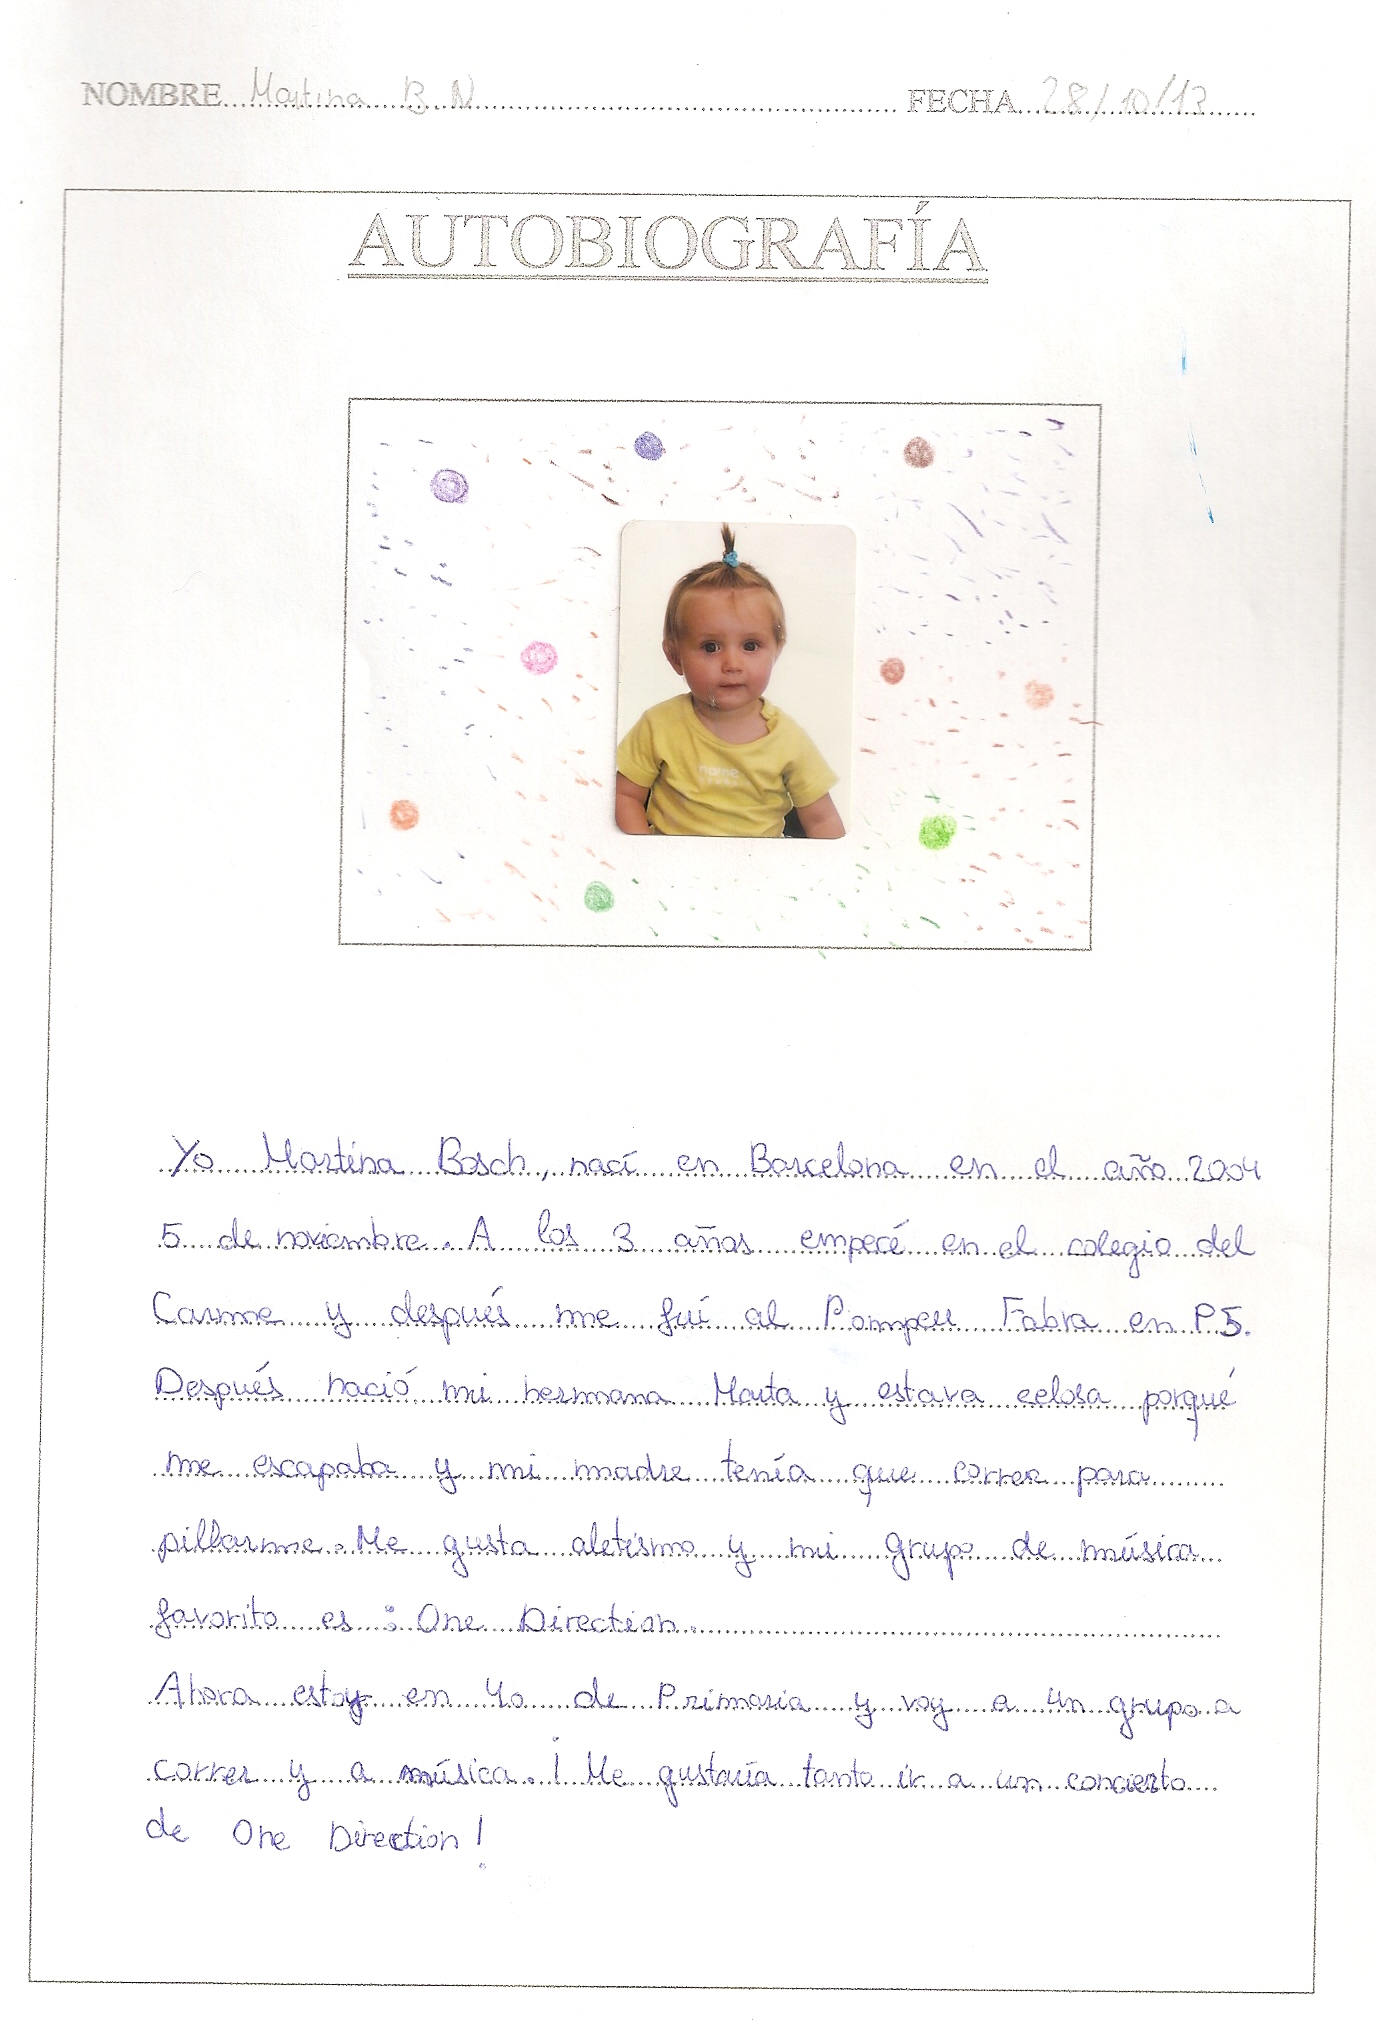 NOMBRE Martina B N FECHA 28/10/13
AUTOBIOGRAFÍA
name
Yo Martina Bosch, nací en Barcelona en el año 2004
5 de noviembre. A los 3 años empecé en el colegio del
Carme y después me fuí al Pompeu Fabra en P5.
Después nació mi hermana Marta y estava celosa porqué
me escapaba y mi madre tenía que correr para
pillarme. Me gusta aletismo y mi grupo de música
favorito es : One Direction.
Ahora estoy en 4o de Primaria y voy a un grupo a
correr y a música. ¡ Me gustaría tanto ir a un concierto
de One Direction!